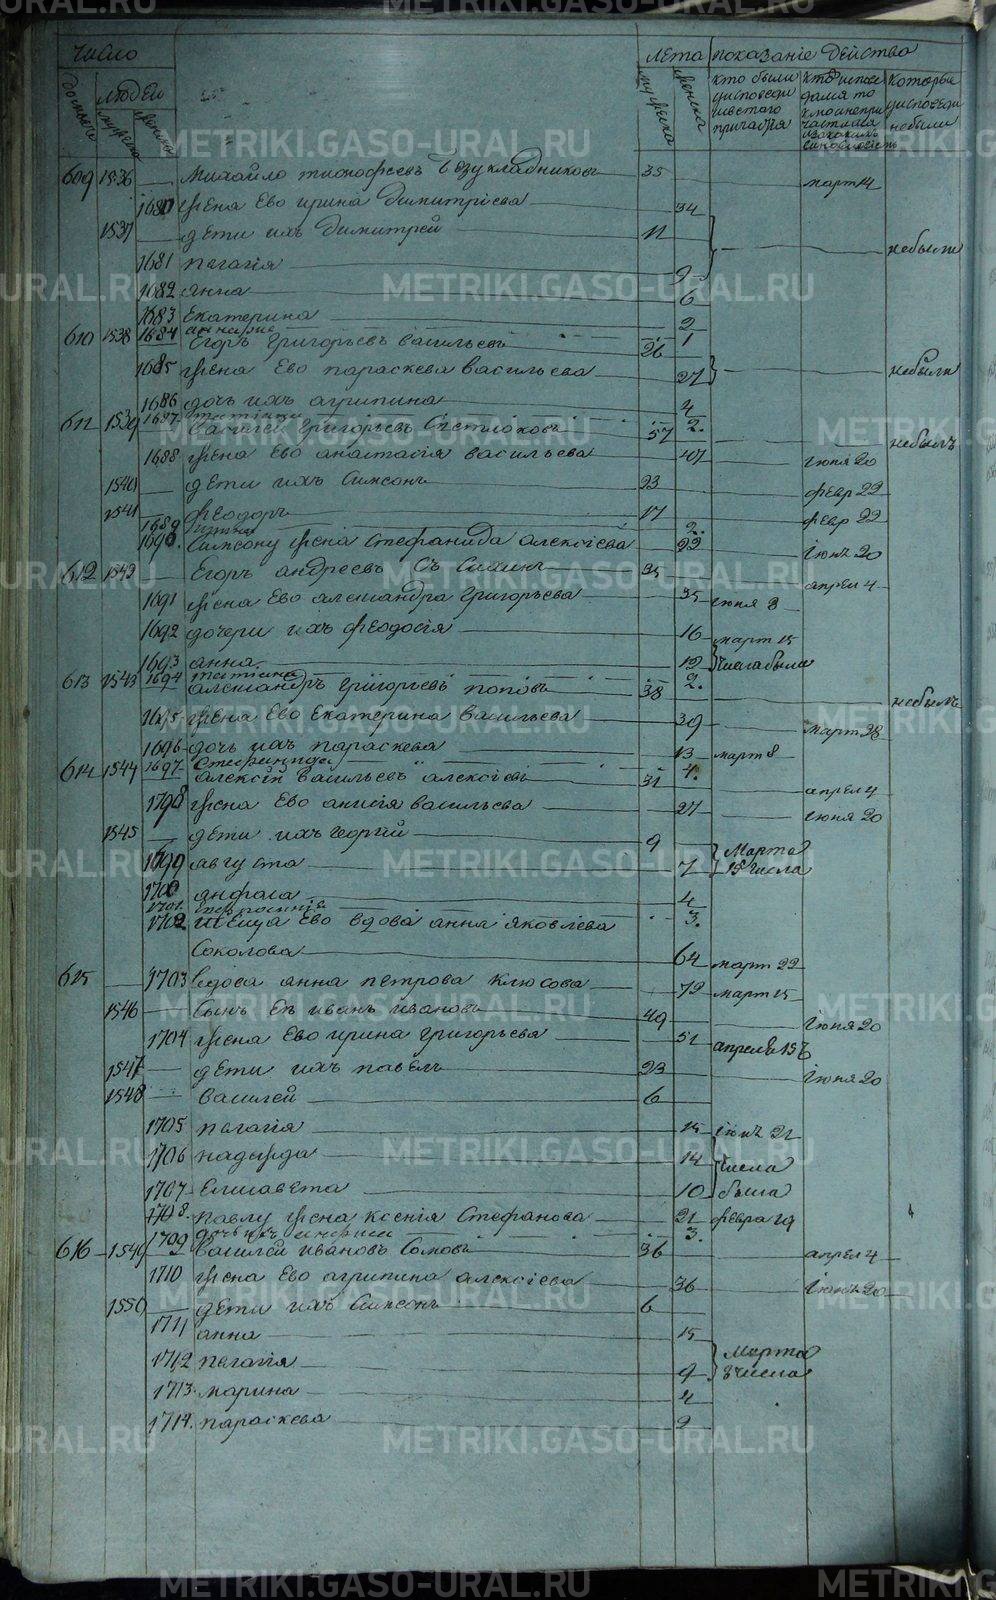 число лета показание действо
домовъ людей мужеска женска мужеска женска кто были у исповеди и святаго причастия которые у исповеди небыли
609 1536 Михайло тимофеевъ 35 март 14
1680 жена Ево ирина димитриева 34
1537 дети ихъ димитрей 11 небыли
1681 пелагiя 9
1682 анна 6
1683 Екатерина 2
1684 1
610 1538 Егоръ григорьевъ васильевъ 26
1685 жена Ево параскева васильева 27 небыли
1686 дочь ихъ агрипина 4
1687 2
611 1539 василей григорьевъ 57 небылъ
1688 жена Ево анастасiя васильева 47 июня 20
1540 дети ихъ Симеонъ 23 февр 22
1541 феодоръ 17 февр 22
1689 2
1690 Симеону жена Стефанида алексiева 22 июня 20
612 1542 Егоръ андреевъ 35 апрел 4
1691 жена Ево александра григорьева 35 июня 3
1692 дочери ихъ феодосiя 16 март 15
1693 анна 12 числа были
1694 татiана 2
613 1543 александръ григорьевъ поповъ 38 небылъ
1695 жена Ево Екатерина васильева 39 март 28
1696 дочь ихъ параскева 13 март 8
1697 Стефанида 4
614 1544 алексiй васильевъ алексiевъ 31 апрел 4
1798 жена Ево анисiя васильева 27 июня 20
1545 дети ихъ георгий 9
1699 августа 7 Марта 15 числа
1700 анфиса 4
1701 3
1702 теща Ево вдова анна яковлева
Соколова 64 март 22
615 1703 вдова анна петрова клюсова 72 март 15
1546 Сынъ Ея иванъ ивановъ 49 июня 20
1704 жена Ево ирина григорьева 51 апреля 15
1547 дети ихъ павелъ 23 июня 20
1548 василей 6
1705 пелагiя 15 21
1706 надежда 14 числа
1707 Елисавета 10 были
1708 павлу жена ксенiя Стефанова 21 февра 19
1709 3
616 1549 василей ивановъ Сомовъ 36 апрел 4
1710 жена Ево агрипина алексiева 36 20
1550 дети ихъ Симеонъ 6
1711 анна 15
1712 пелагiя 9 Марта 8 числа
1713 марина 4
1714 параскева 2
METRIKI.GASO-URAL.RU